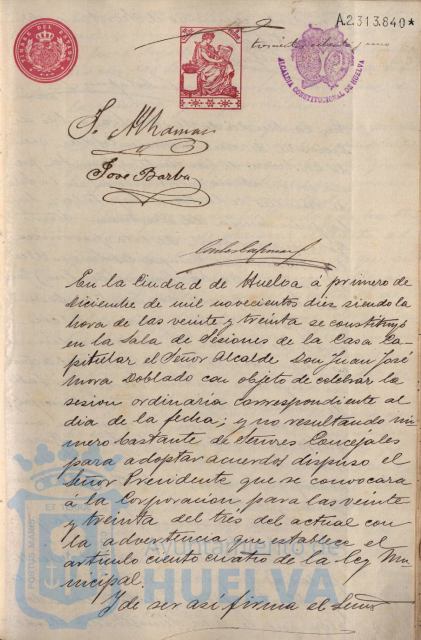 A2313.840*
TIMBRE DEL ESTADO
ALCALDIA CONSTITUCIONAL DE HUELVA
J. Alhaman
Jose Barba
En la Ciudad de Huelva á primero de
Diciembre de mil novecientos diez siendo la
hora de las veinte y treinta se constituyó
en la Sala de Sesiones de la Casa Ca-
pitular el Señor Alcalde Don Juan José
Mora Doblado con objeto de celebrar la
sesion ordinaria correspondiente al
dia de la fecha; y no resultando nú-
mero bastante de Señores Concejales
para adoptar acuerdos dispuso el
Señor Presidente que se convocara
á la Corporacion para las veinte
y treinta del tres del actual con
la advertencia que establece el
articulo ciento cuatro de la ley Mu-
nicipal.
Y de ser así firma el Señor
PORTUS MARIS
Ayuntamiento de
HUELVA